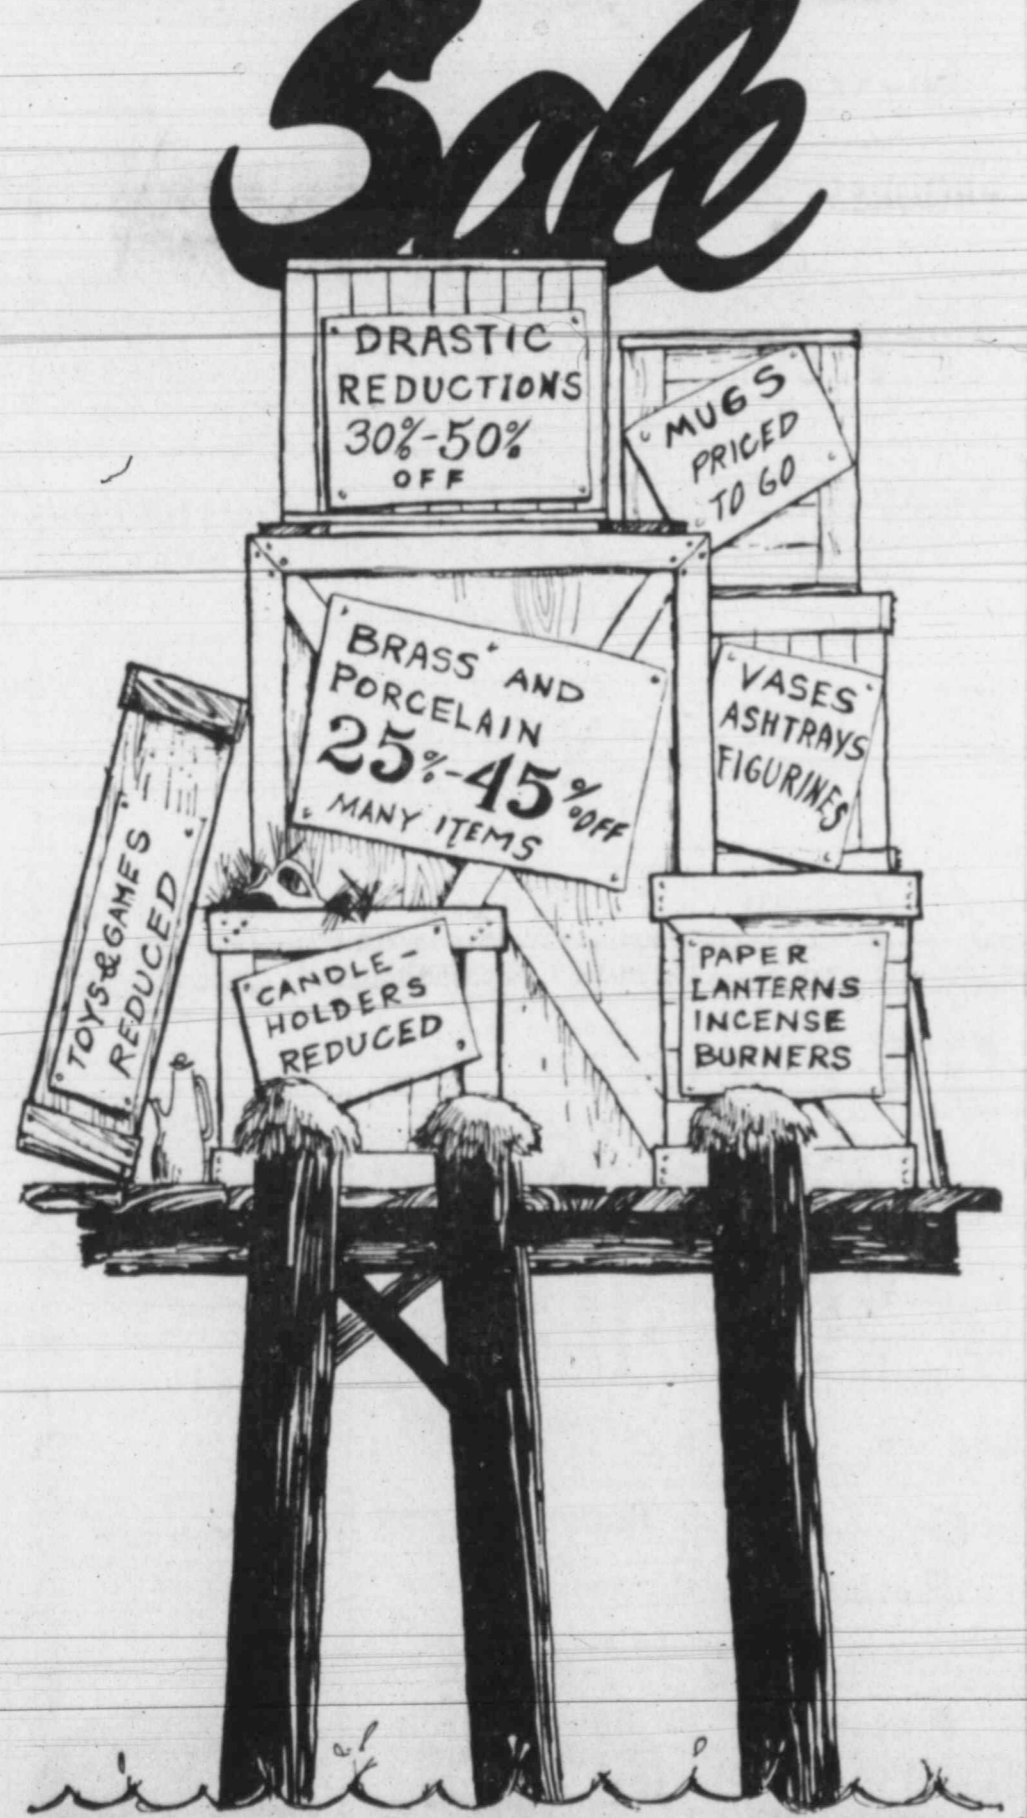 Sale
DRASTIC
REDUCTIONS
30%-50%
OFF
MUGS
PRICED
TO GO
"BRASS" AND
PORCELAIN
25%-45% OFF
MANY ITEMS
VASES
ASHTRAYS
FIGURINES
TOYS & GAMES
REDUCED
CANDLE-
HOLDERS
REDUCED
PAPER
LANTERNS
INCENSE
BURNERS